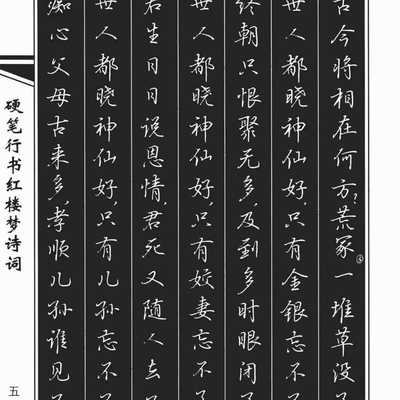 古今将相在何方?荒冢③一堆草没了
世人都晓神仙好,只有金银忘不了
终朝只恨聚无多,及到多时眼闭了
世人都晓神仙好,只有姣妻忘不了
君生日日说恩情,君死又随人去了
世人都晓神仙好,只有儿孙忘不了
痴心父母古来多,孝顺儿孙谁见了
硬笔行书红楼梦诗词
五